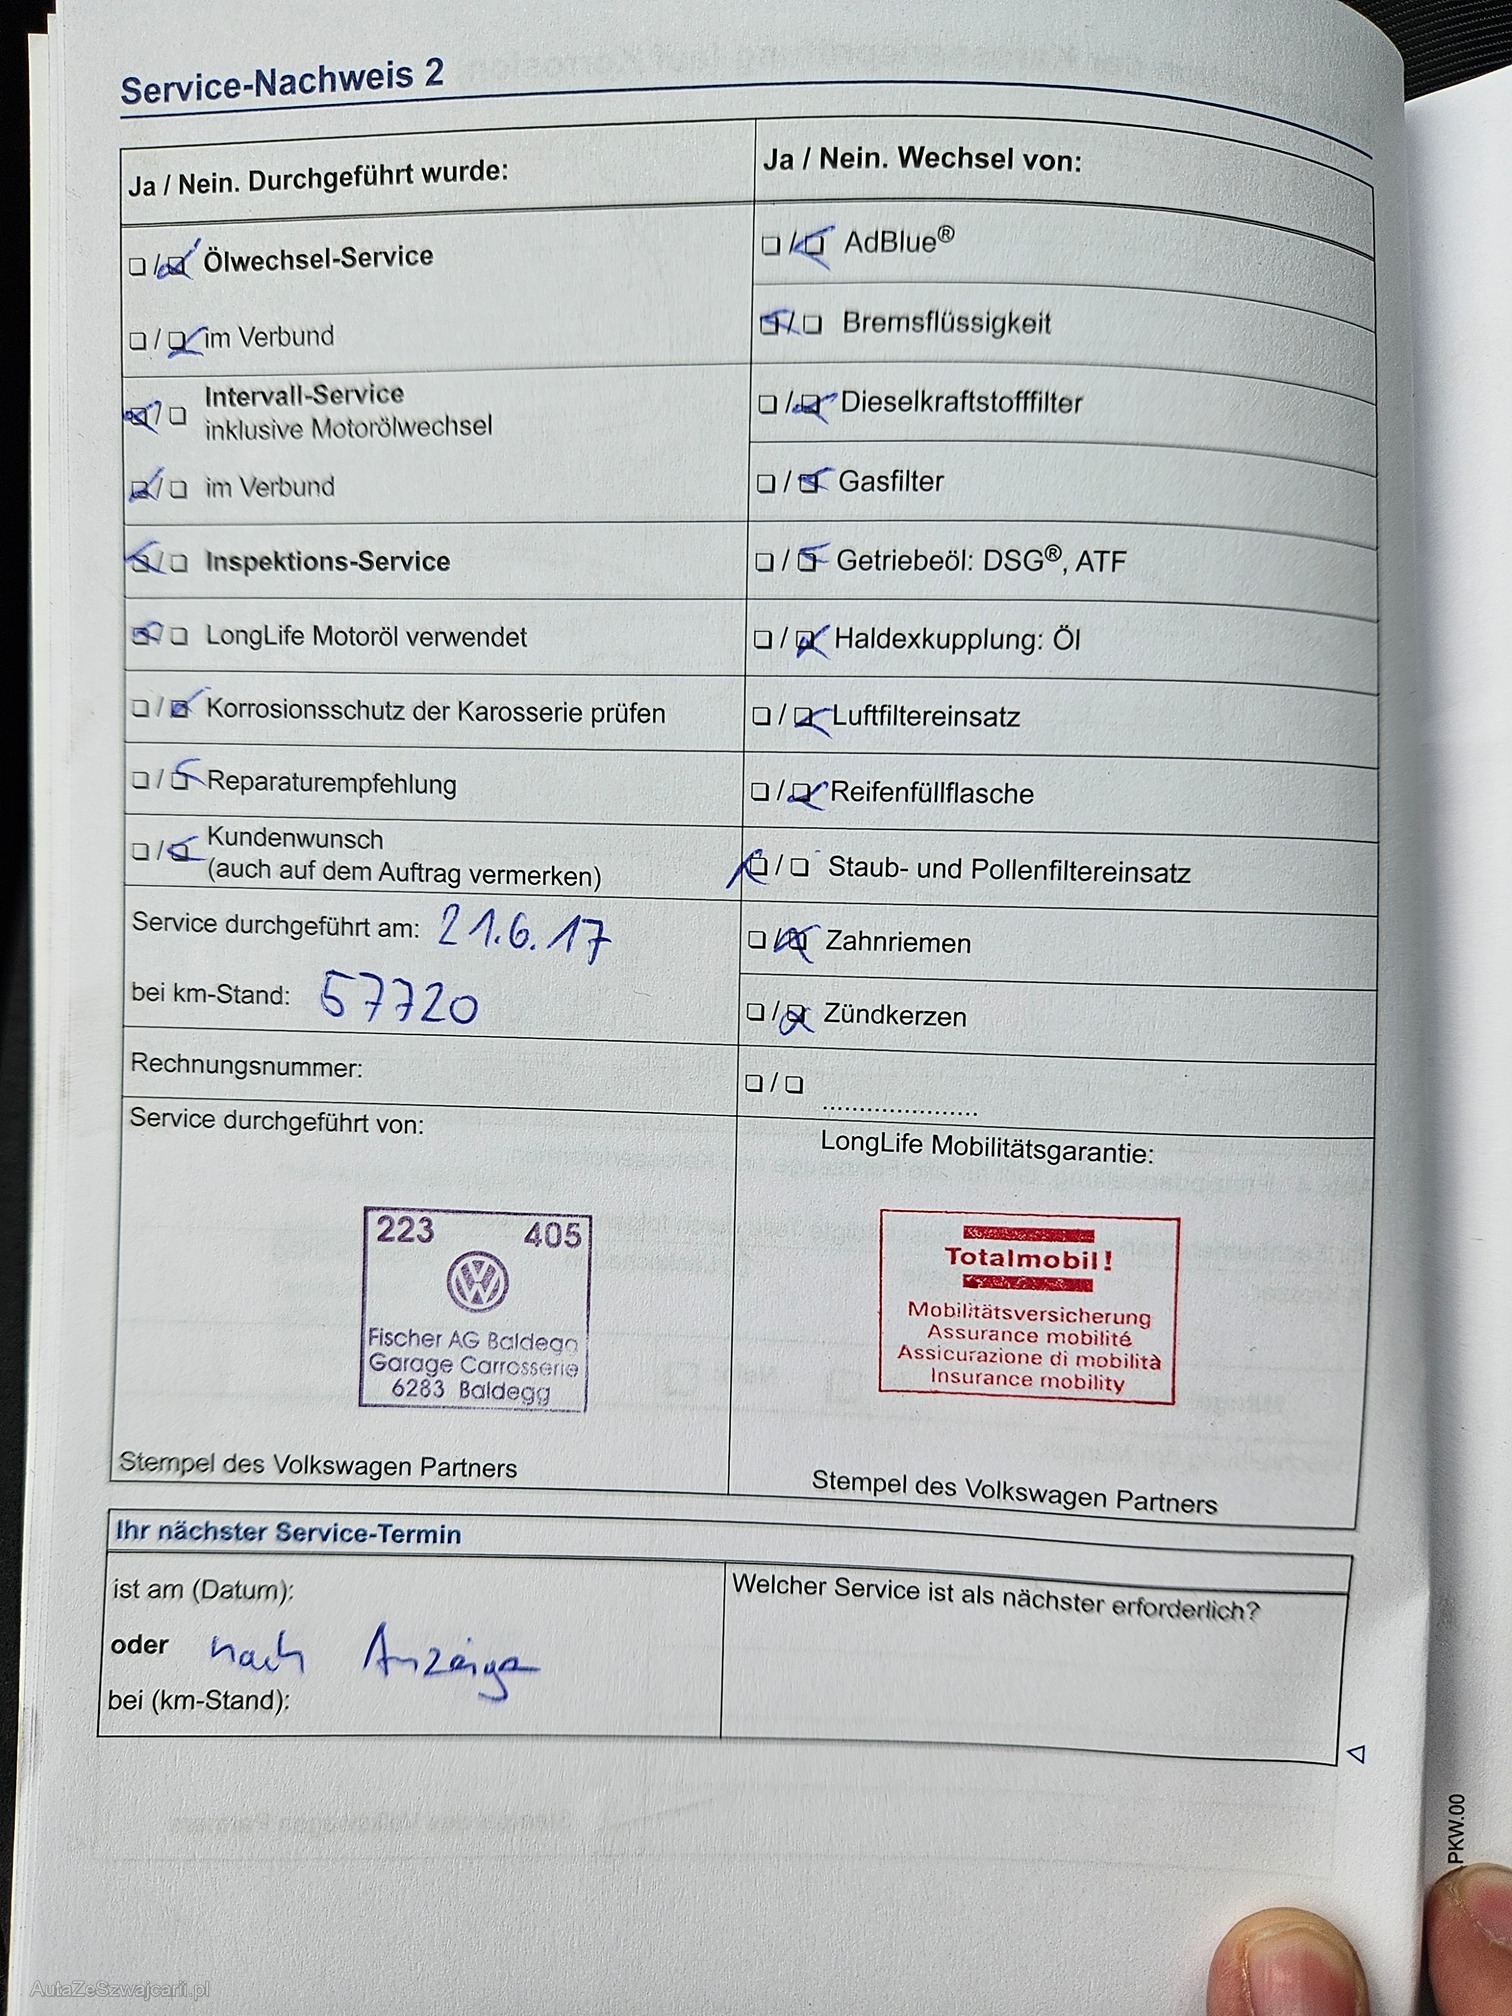 Service-Nachweis 2
Ja / Nein. Durchgeführt wurde:
☐ / ☒ Ölwechsel-Service
☐ / ☒ im Verbund
☒ / ☐ Intervall-Service
inklusive Motorölwechsel
☒ / ☐ im Verbund
☒ / ☐ Inspektions-Service
☒ / ☐ LongLife Motoröl verwendet
☐ / ☒ Korrosionsschutz der Karosserie prüfen
☐ / ☒ Reparaturempfehlung
☐ / ☒ Kundenwunsch
(auch auf dem Auftrag vermerken)
Service durchgeführt am: 21.6.17
bei km-Stand: 57720
Rechnungsnummer:
Service durchgeführt von:
223 405
Fischer AG Baldegg
Garage Carrosserie
6283 Baldegg
Stempel des Volkswagen Partners
Ja / Nein. Wechsel von:
☐ / ☒ AdBlue®
☒ / ☐ Bremsflüssigkeit
☐ / ☒ Dieselkraftstofffilter
☐ / ☒ Gasfilter
☐ / ☒ Getriebeöl: DSG®, ATF
☐ / ☒ Haldexkupplung: Öl
☐ / ☒ Luftfiltereinsatz
☐ / ☒ Reifenfüllflasche
☒ / ☐ Staub- und Pollenfiltereinsatz
☐ / ☒ Zahnriemen
☐ / ☒ Zündkerzen
☐ / ☐ .....................
LongLife Mobilitätsgarantie:
Totalmobil!
Mobilitätsversicherung
Assurance mobilité
Assicurazione di mobilità
Insurance mobility
Stempel des Volkswagen Partners
Ihr nächster Service-Termin
ist am (Datum):
oder nach Anzeige
bei (km-Stand):
Welcher Service ist als nächster erforderlich?
PKW.00
AutaZeSzwajcarii.pl